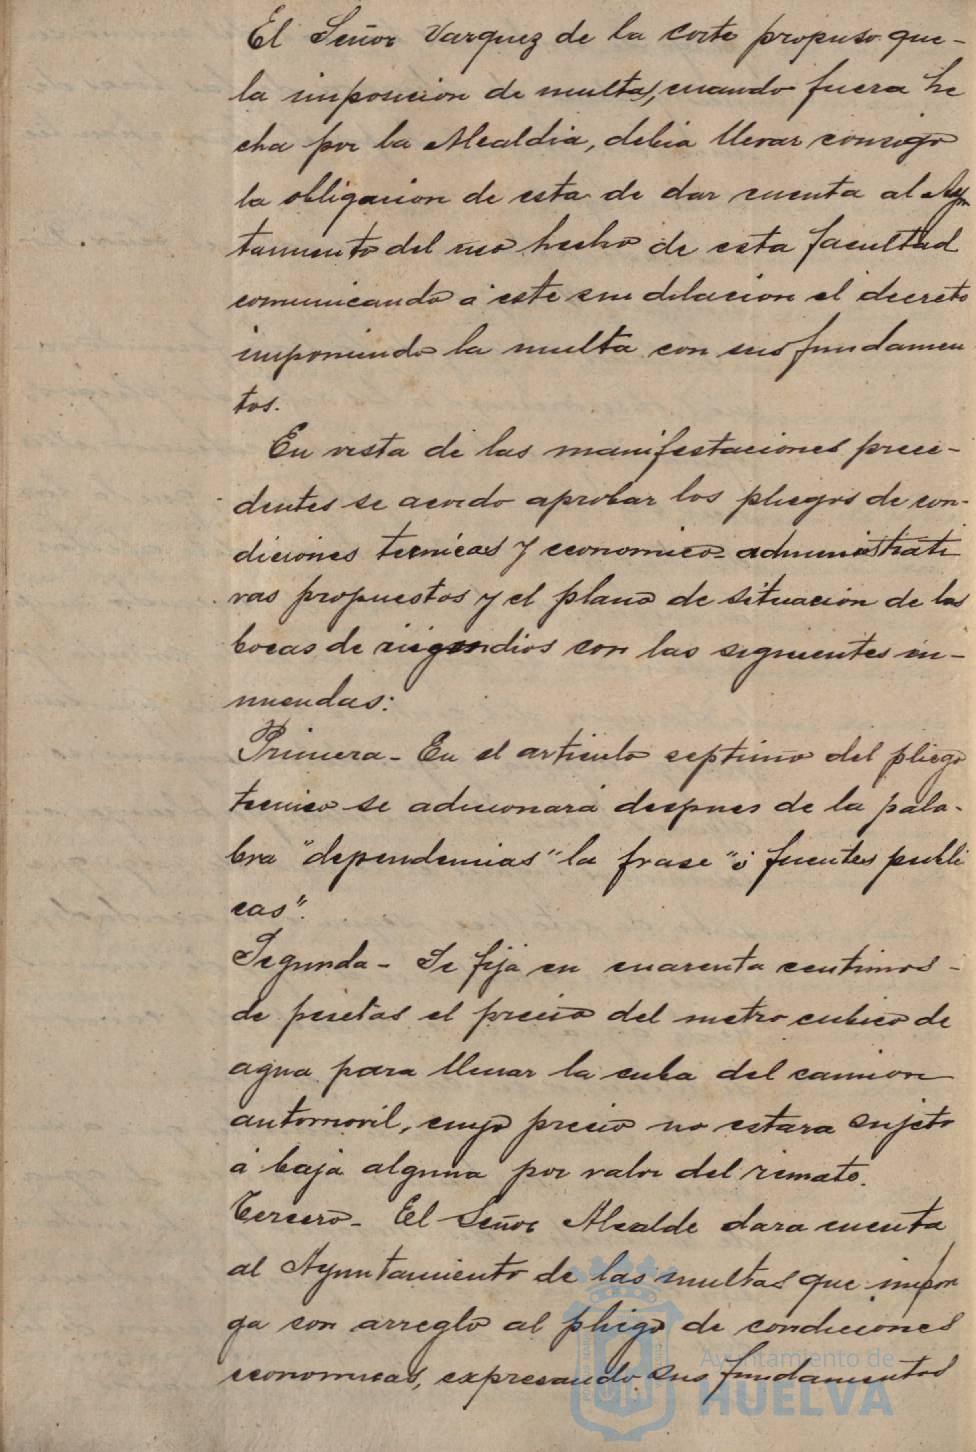 El Señor Vazquez de la corte propuso que-
la imposicion de multas, cuando fuera he
cha por la Alcaldia, debia llevar consigo
la obligacion de esta de dar cuenta al Ayn
tamiento del uso hecho de esta facultad
comunicando á este sin dilacion el decreto
imponiendo la multa con sus fundamen
tos.
En vista de las manifestaciones prece-
dentes se acordo aprobar los pliegos de con-
diciones tecnicas y economico-administrati
vas propuestos y el plano de situacion de las
bocas de con las siguientes in-
muendas:
Primera- En el articulo septimo del pliego
tecnico se adicionará despues de la pala-
bra "dependencias" la frase "ó fuentes publi
cas".
Segunda- Se fija en cuarenta centimos-
de pesetas el precio del metro cubico de
agua para llenar la cuba del camion
automovil, cuyo precio no estara sujeto
á baja alguna por valor del remate.
Tercero- El Señor Alcalde dara cuenta
al Ayuntamiento de las multas que impon
ga con arreglo al pliego de condiciones
economicas, expresando sus fundamentos
Ayuntamiento de
HUELVA